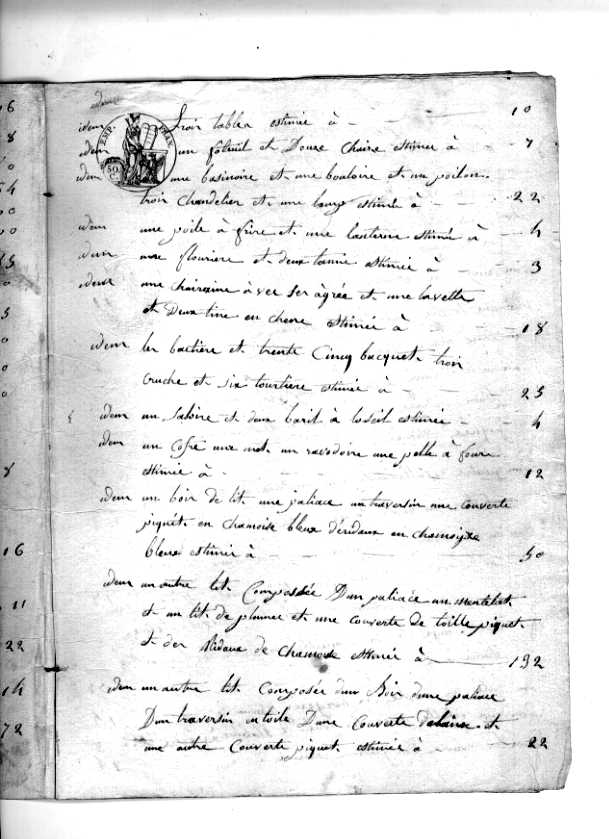 6
8
0
54
00
00
55
0
5
0
0
0
8
16
11
22
14
72
idem
idem trois tables estimée à 10
EMP. FRAN.
50 C.
idem un foteuil et Douze Chaise estimee à 7
idem une basinoire et une bouloire et un poilon
trois Chandelier et une lamp estimée à 22
idem une poile à frire et une lanterne estimée à 4
idem une flouriere et deux tamie estimée à 3
idem une à vec ser àgrée et une lavette
et Deux tine en chene estimée à 18
idem les et trente Cinq bacquet trois
cruche et six tourtiere estimée à 25
idem un Saloire et deux baril à estimée 4
idem un Cofre une met un une pelle à foure
estimée à 12
idem un boir de lit une paliace un traversin une couverte
piquét en chamoise bleux Déridaux en chamoise
bleux estimée à 50
idem un autre lit Composée Dun paliace un mentelat
et un lit de plumee et une couverte de toille piquet
et des Ridaux de Chamoise estimée à 132
idem un autre lit Composée dun Boir dune paliace
Dun traversin en toile Dune Couverte delaine et
une autre Couverte piquet estimée à 22